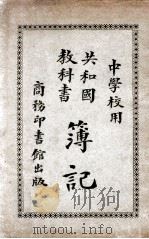 中學校用
共和國
教科書
簿記
商務印書館出版
www.mtoou.info